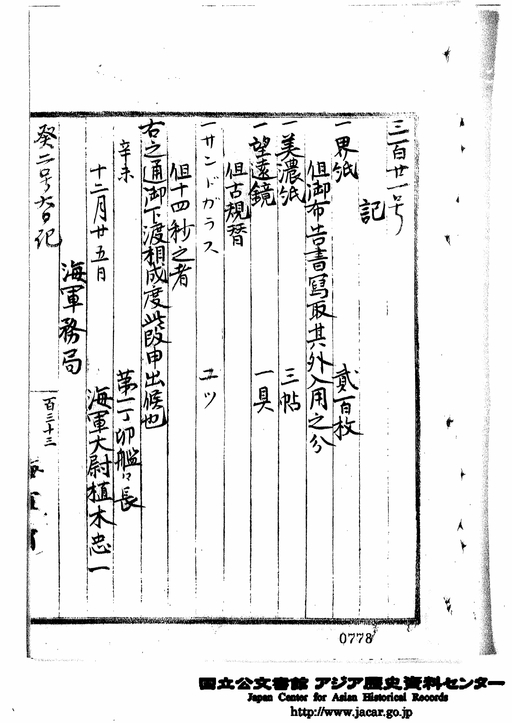 三百廿一号
記
一界紙 貳百枚
但御布告書寫取其外入用之分
一美濃紙 三帖
一望遠鏡 一具
但古規替
一サンドガラス ユツ
但十四秒之者
右之通御下渡相成度此段申出候也
辛未
十二月廿五日
第一丁卯艦艦長
海軍大尉植木忠一
海軍務局
癸二号大日記
百三十三
海軍省
0778
国立公文書館 アジア歴史資料センター
Japan Center for Asian Historical Records
http://www.jacar.go.jp